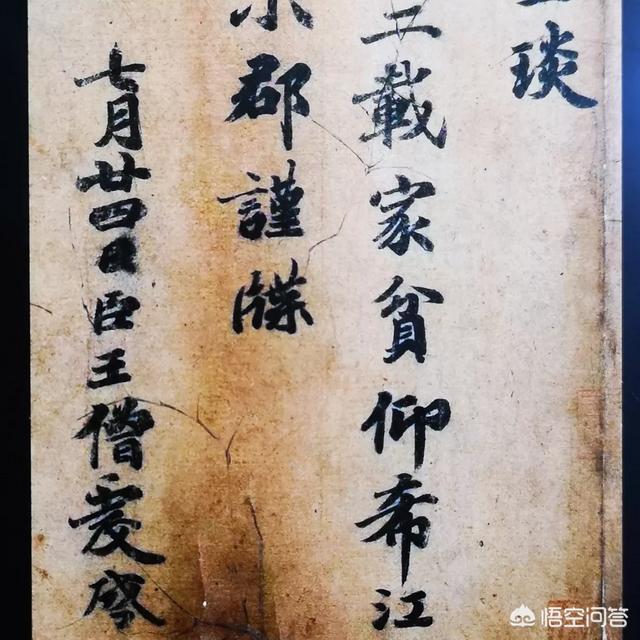 琰
三載家貧仰希江
小郡謹牒
七月廿四日臣王僧虔啓
悟空问答